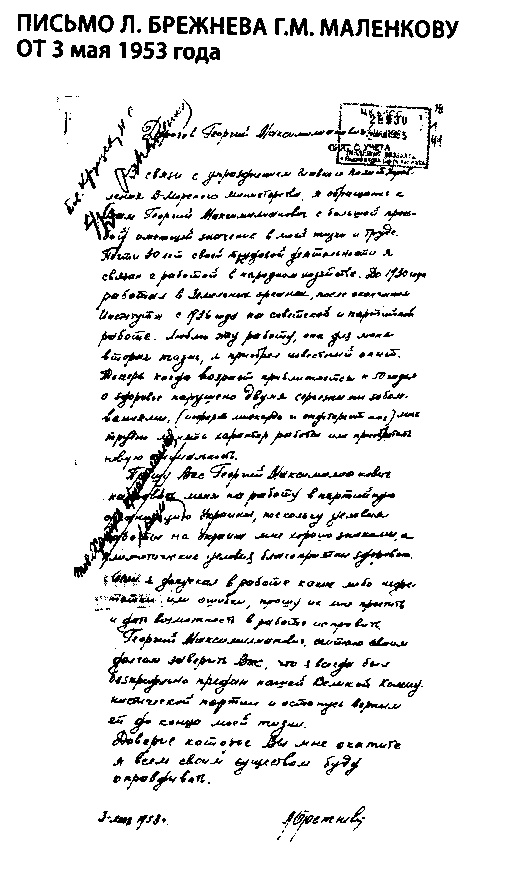 ПИСЬМО Л. БРЕЖНЕВА Г.М. МАЛЕНКОВУ
ОТ 3 мая 1953 года
Дорогой Георгий Максимилианович
связи с упразднением Главного
ления В-Морского министерства, я обращаюсь к
Вам Георгий Максимилианович с большой прось
бой имеющей значение в моей жизни и труде.
Почти 30 лет своей трудовой деятельности я
связан с работой в народном хозяйстве. До 1930 года
работал в Земельных органах, после окончания
Института с 1936 года на советской и партийной
работе. Люблю эту работу, она для меня
вторая жизнь, я приобрел известный опыт.
Теперь когда возраст приближается к 50 годам
а здоровье нарушено двумя серьезными забол
ваниями, (инфаркт миокарда и эндартериит ног) мне
трудно менять характер работы или приобретать
новую специальность.
Прошу Вас Георгий Максимилианович
направить меня на работу в партийную
организацию Украины, поскольку условия
работы на Украине мне хорошо знакомы, а
климатические условия благоприятны здоровью.
Если я допускал в работе какие либо недос
татки или ошибки, прошу их мне простить
и дать возможность в работе исправить.
Георгий Максимилианович, считаю своим
долгом заверить Вас, что я всегда был
безпредельно предан нашей Великой Комму
нистической партии и останусь верным
ей до конца моей жизни.
Доверие которое Вы мне окажите
я всем своим существом буду
оправдывать.
3 мая 1953 г.
ЛБрежнев